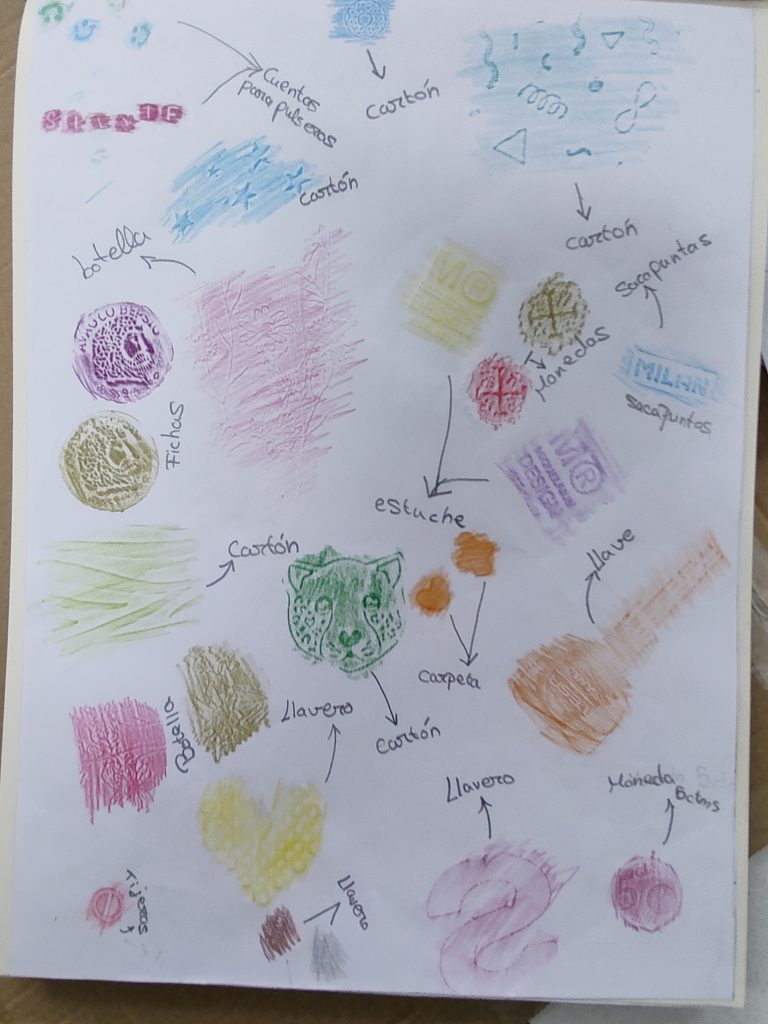 Cuentas
para pulseras
Cartón
Cartón
Cartón
botella
Sacapuntas
M®
Monedas
MILAN
Sacapuntas
Fichas
M®
DESIGN
estuche
Cartón
Llave
Carpeta
Botella
Llavero
Cartón
Llavero
Moneda
5ctms
Tijeras
Llavero